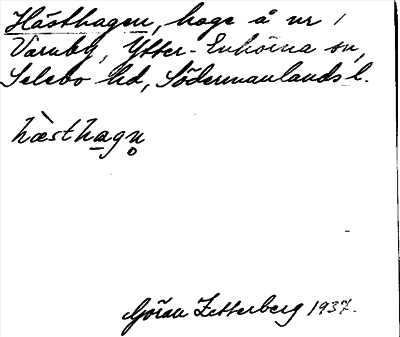 Hästhagen, hage å nr 1
Varuby, Ytter-Enhörna sn,
Selebo hd, Södermanlands l.
hæ̀sthagn̥
Göran Zetterberg 1937.